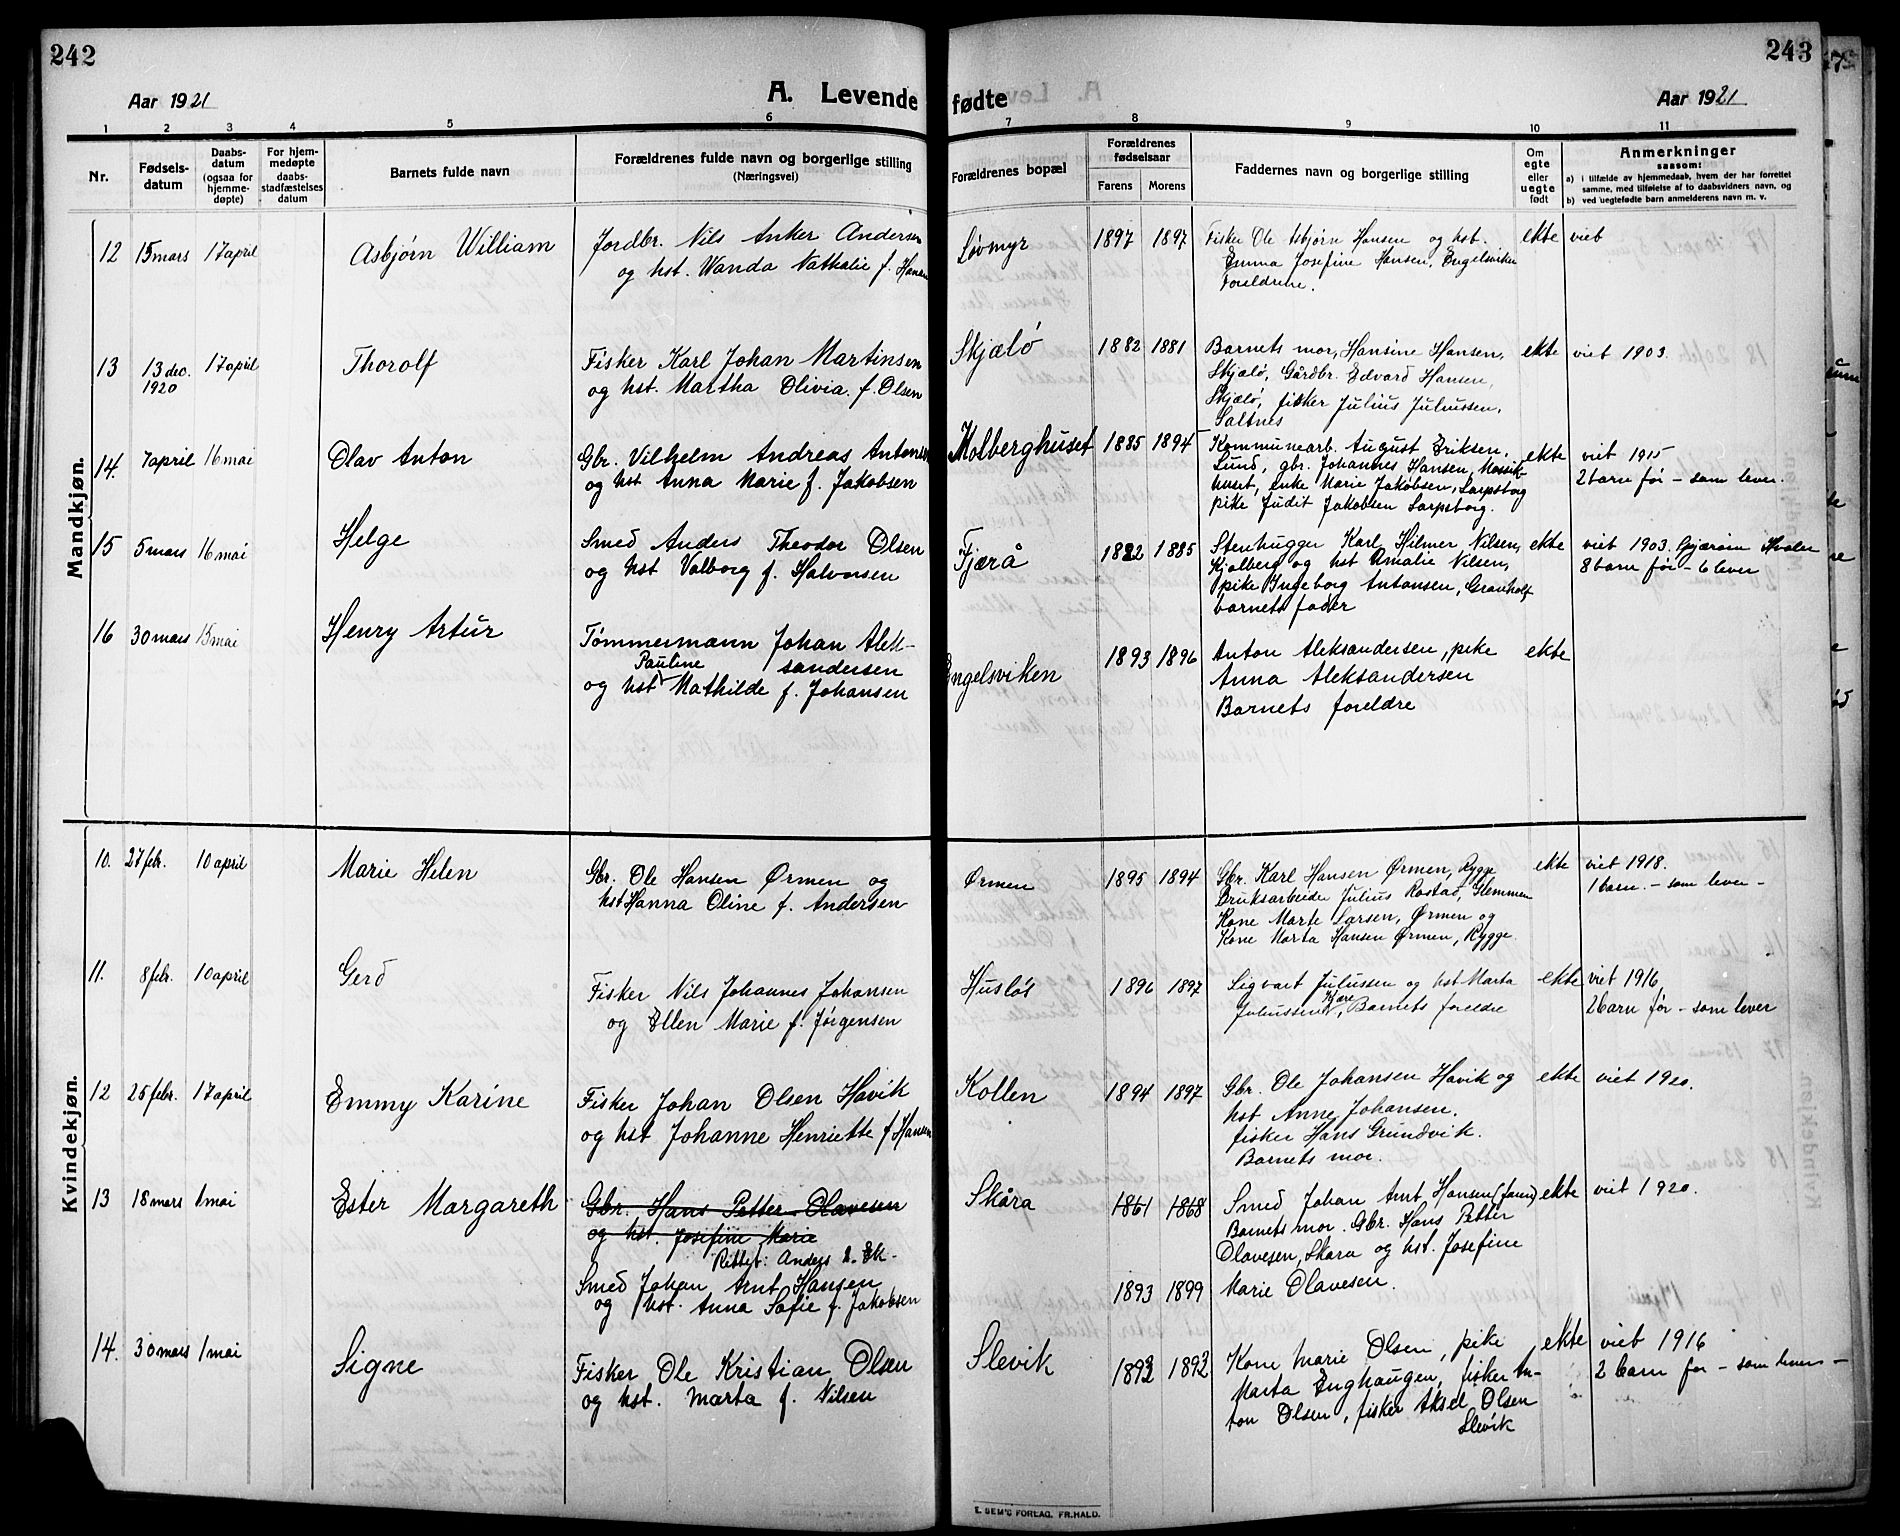 242
243
Aar 1921
A. Levende fødte
Aar 1921
1 2 3 4 5 6 7 8 9 10 11
Nr.
Fødsels-
datum
Daabs-
datum
(ogsaa for
hjemme-
døpte)
For hjem-
medøpte
daabs-
stadfæstelses
datum
Barnets fulde navn
Forældrenes fulde navn og borgerlige stilling
(Næringsvei)
Forældrenes bopæl
Forældrenes
fødselsaar
Farens Morens
Faddernes navn og borgerlige stilling
Om
egte
eller
uegte
født
Anmerkninger
saasom:
a) i tilfælde av hjemmedaab, hvem der har forrettet
samme, med tilføielse af to daabsvidners navn, og
b) ved uegtefødte barn anmelderens navn m. v.
Mandkjøn.
12 15 mars 17 april Asbjørn William
Jordbr. Nils Anker Andersen
og hst. Wanda Nathalie f. Hansen
Løvmyr 1897 1897
Fisker Ole Asbjørn Hansen og hst.
Emma Josefine Hansen, Engelsviken
Foreldrene.
ekte viet
13 13 dec. 17 april Thorolf
1920
Fisker Karl Johan Martinsen
og hst. Martha Olivia f. Olsen
Skjælø 1882 1881
Barnets mor, Hansine Hansen,
Skjælø, Gårdbr. Edvard Hansen,
Skjælø, fisker Julius Juliussen,
Saltnes
ekte viet 1903.
14. 7 april 16 mai Olav Anton
Gbr. Vilhelm Andreas Antonsen
og hst Anna Marie f. Jakobsen
Kolberghuset 1885 1894
Kommunearb. August Eriksen,
Lund, gbr. Johannes Hansen, Mossik-
huset, enke Marie Jakobsen, Sarpsborg
pike Judit Jakobsen Sarpsborg.
ekte viet 1915
2 barn før – som lever.
15 5 mars 16 mai Helge
Smed Anders Theodor Olsen
og hst Valborg f. Halvorsen
Fjærå 1882 1885
Stenhugger Karl Hilmer Nilsen,
Kjølberg og hst Amalie Nilsen,
pike Ingeborg Antonsen, Granholt
barnets fader
ekte viet 1903. Hvaler
8 barn før – 6 lever
16 30 mars 15 mai Henry Artur
Tømmermann Johan Alek-
sandersen
Pauline
og hst Mathilde f. Johansen
Engelsviken 1893 1896
Anton Aleksandersen, pike
Anna Aleksandersen
Barnets foreldre
ekte
Kvindekjøn.
10. 27 febr. 10 april Marie Helen
Gbr. Ole Hansen Ørmen og
hst Hanna Oline f. Andersen
Ørmen 1895 1894
Gbr. Karl Hansen Ørmen, Rygge
Bruksarbeider Julius Rostad, Glemmen
Kone Marte Larsen, Ørmen og
Kone Marta Hansen Ørmen, Rygge.
ekte viet 1918.
1 barn. – som lever –
11. 8 febr. 10 april Gerd
Fisker Nils Johannes Johansen
og Ellen Marie f. Jørgensen
Husløs 1896 1897
Sigvart Juliussen og hst Marta
Juliussen Kjære, Barnets foreldre
ekte viet 1916
2 barn før – som lever
12 25 febr. 17 april Emmy Karine
Fisker Johan Olsen Håvik
og hst Johanne Henriette f. Hansen
Kollen 1894 1897
Gbr. Ole Johansen Håvik og
hst Anne Johansen.
fisker Hans Grundvik.
Barnets mor.
ekte viet 1920.
13 18 mars 1 mai Ester Margareth
Gbr. Hans Petter Olavesen
og hst. Josefine Marie
Rettet: Anders
Smed Johan Arnt Hansen
og hst. Anna Sofie f. Jakobsen
Skåra 1861 1868
1893 1899
Smed Johan Arnt Hansen (faren)
Barnets mor. Gbr. Hans Petter
Olavesen, Skåra og hst. Josefine
Marie Olavesen.
ekte viet 1920.
14. 30 mars 1 mai Signe
Fisker Ole Kristian Olsen
og hst. Marta f. Nilsen
Slevik 1892 1892
Kone Marie Olsen, pike
Marta Enghaugen, fisker An-
ton Olsen, fisker Aksel Olsen
Slevik
ekte viet 1916
2 barn før – som lever –
E. SEM'S FORLAG, FR.HALD.